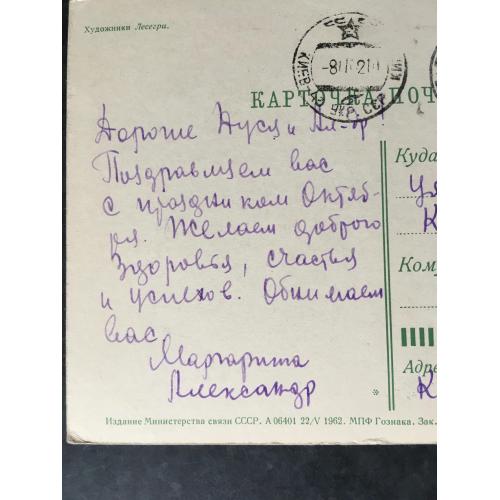 Художники Лесегри.
СССР
КИЕВ
УКР. ССР
КАРТОЧКА ПОЧ
Дорогие Нуся и Ал-др!
Поздравляем вас
с праздником Октяб-
ря. Желаем доброго
здоровья, счастья
и успехов. Обнимаем
вас
Маргарита
Александр
Куда
К
Кому
Адре
К
Издание Министерства связи СССР. А 06401 22/V 1962. МПФ Гознака. Зак.